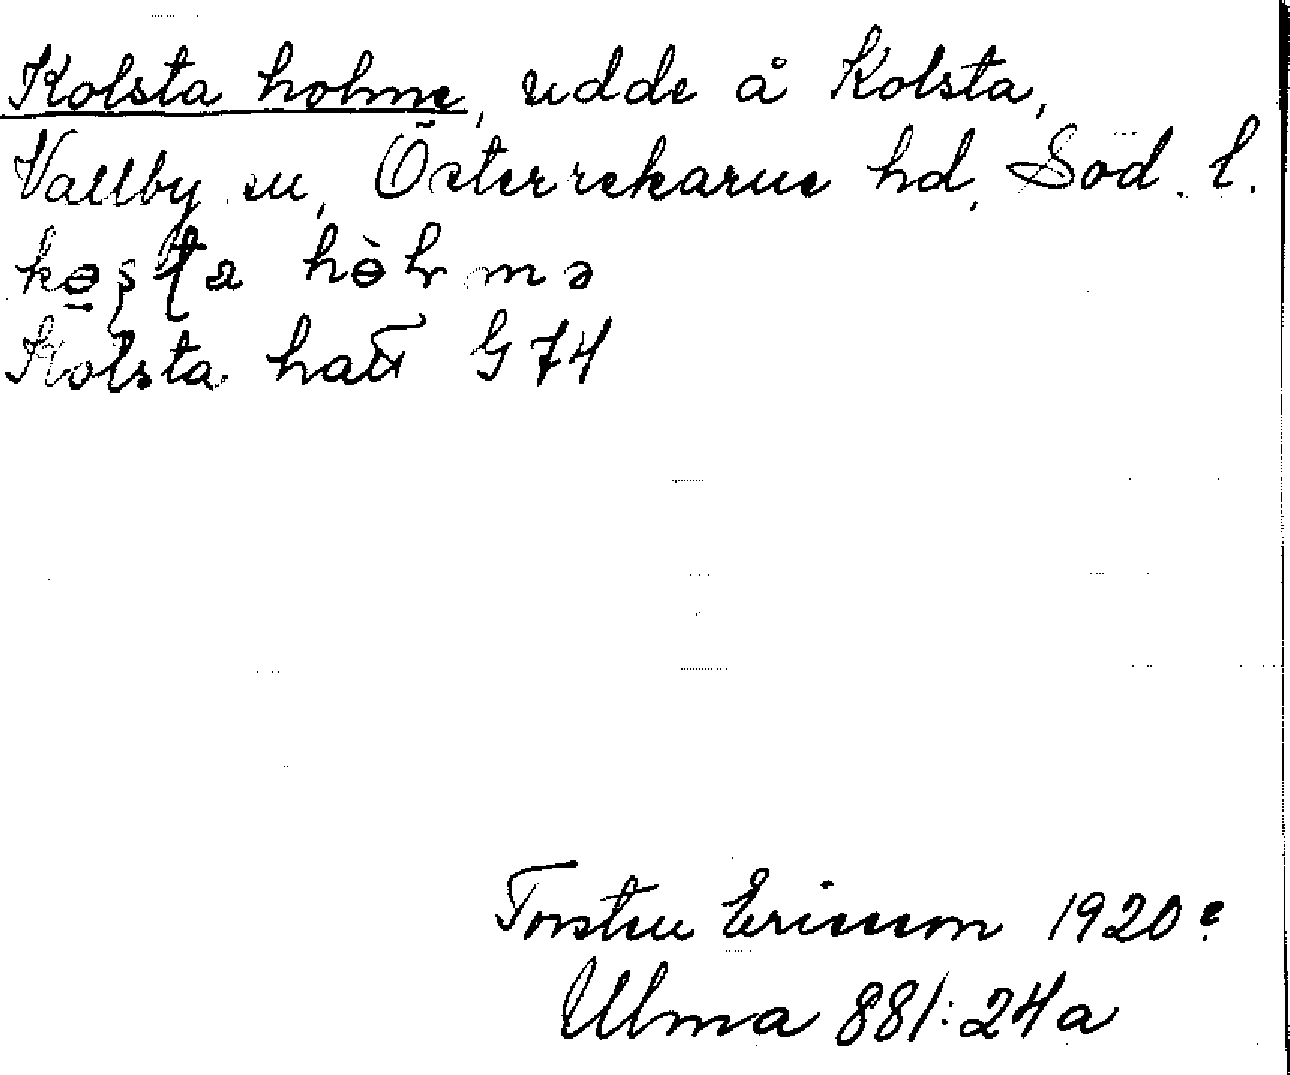 Kolsta holme, udde å Kolsta,
Vallby sn, Österrekarne hd, Söd. l.
Kolsta hatt G 74
Torsten Ericsson 1920?
Ulma 881:24a